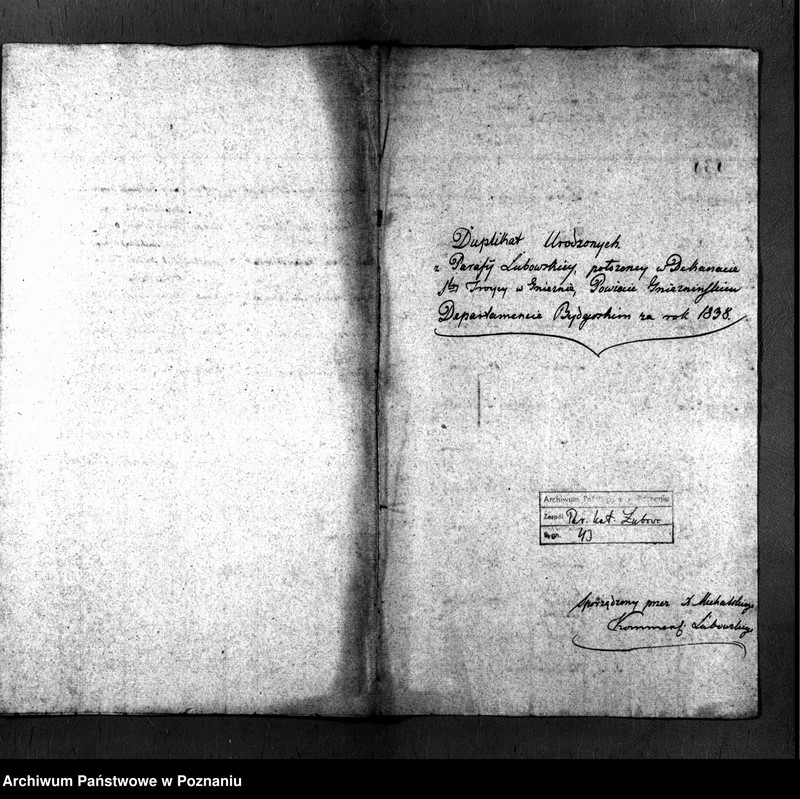 Duplikat Urodzonych
z Parafij Lubowskiey, położoney w Dekanacie
Stey Troycy w Gnieznie, Powiecie Gnieznenskim
Departamencie Bydgoskim za rok 1838.
Archiwum Państwowe w Poznaniu
Zespół Par. kat. Łubowo
Sygn. 43
Sporządzony przez X Michalskiego
Kommend. Lubowskiego
Archiwum Państwowe w Poznaniu